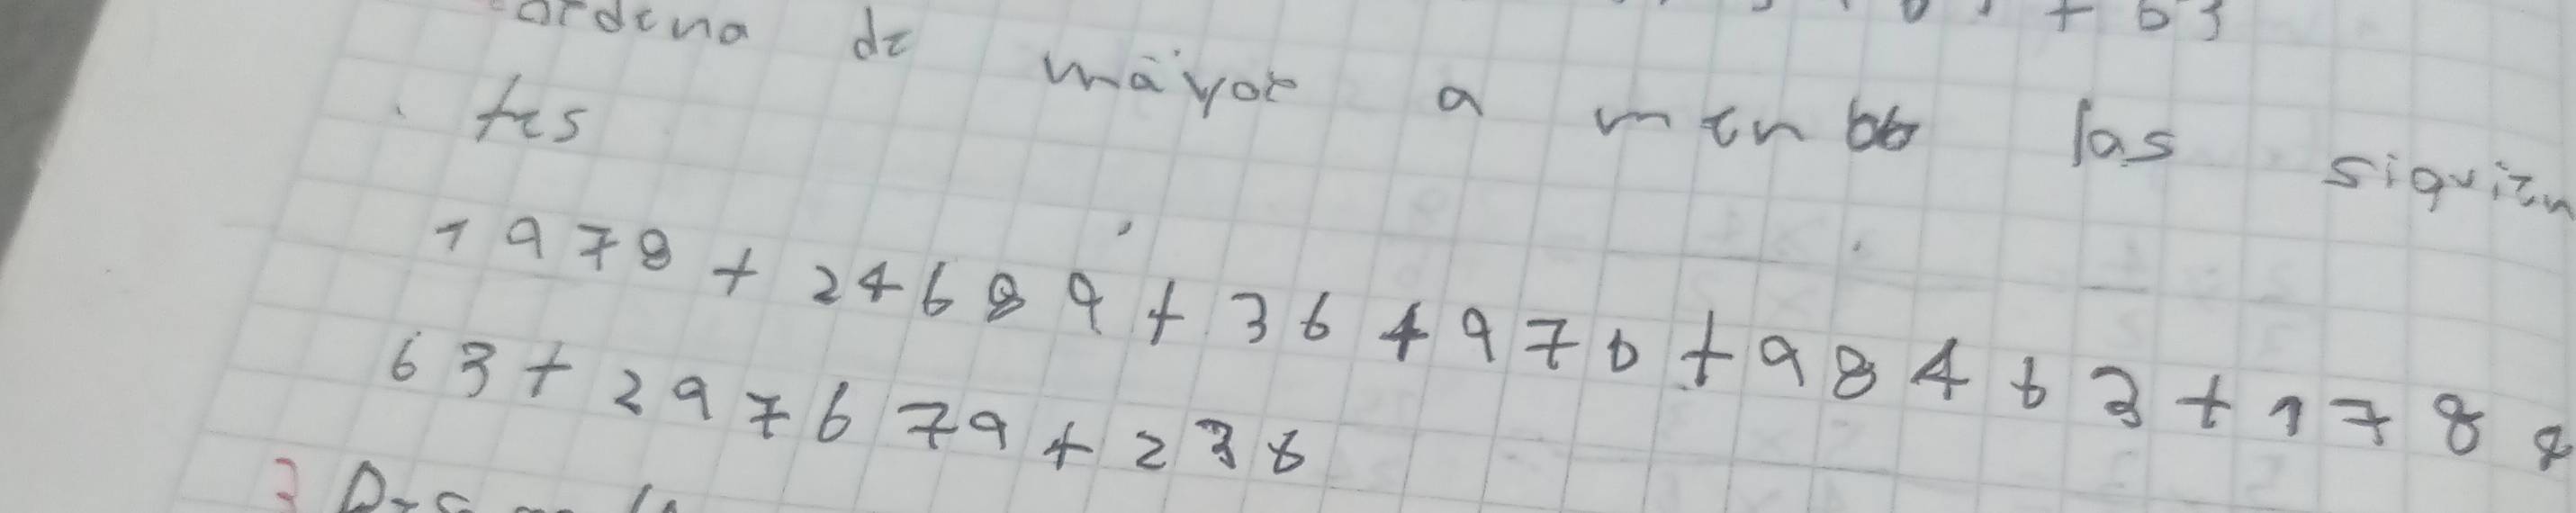 + 63
ordena de mayor a menor las siguien
tes
1978 + 24689 + 364976 + 98463 + 178
63 + 297679 + 236
3